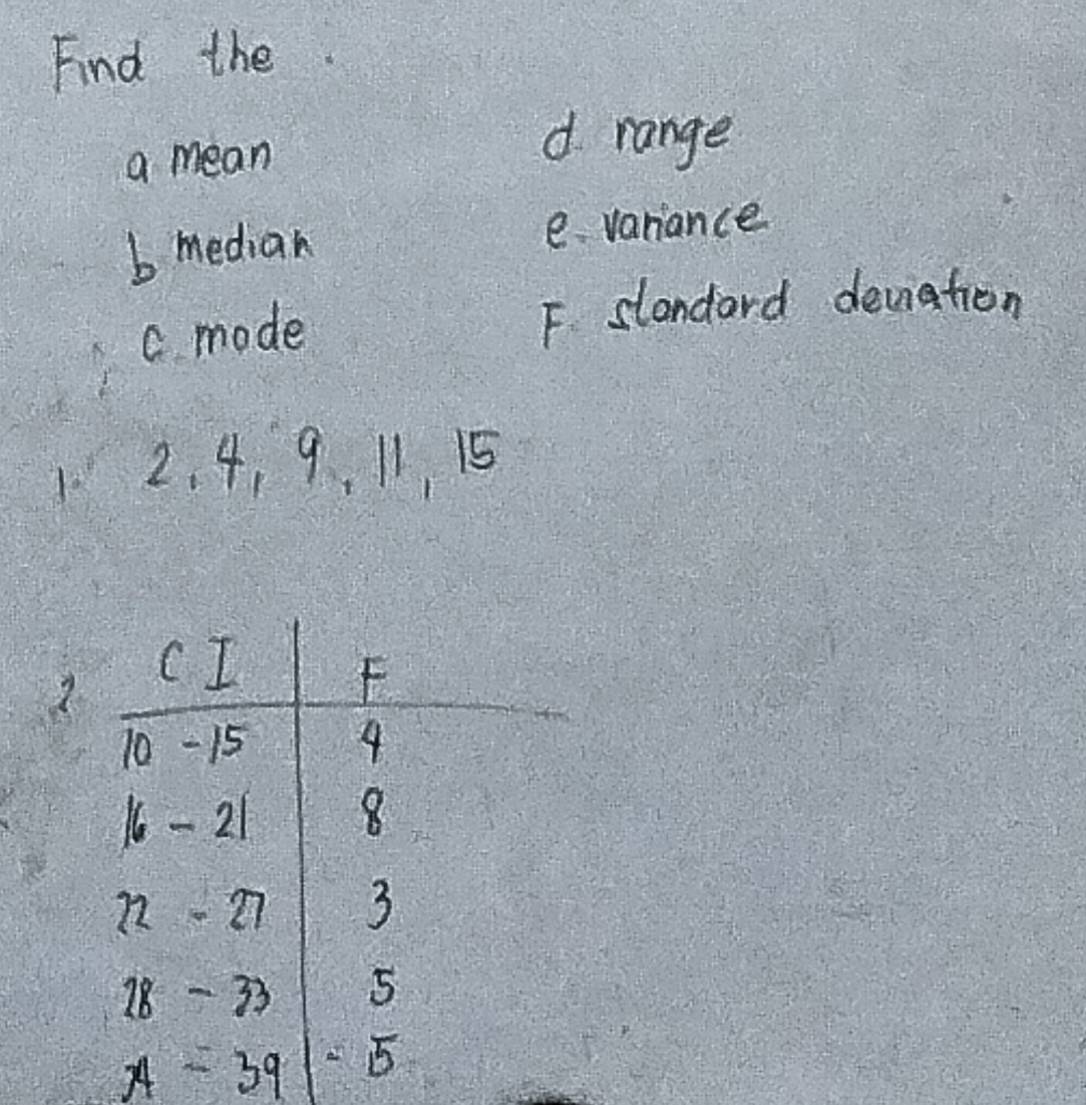 Find the
a mean
b median
c. mode
d. range
e. variance
F. standard deviation
1. 2, 4, 9, 11, 15
2
C I F
10 - 15 4
16 - 21 8
22 - 27 3
28 - 33 5
34 - 39 - 5